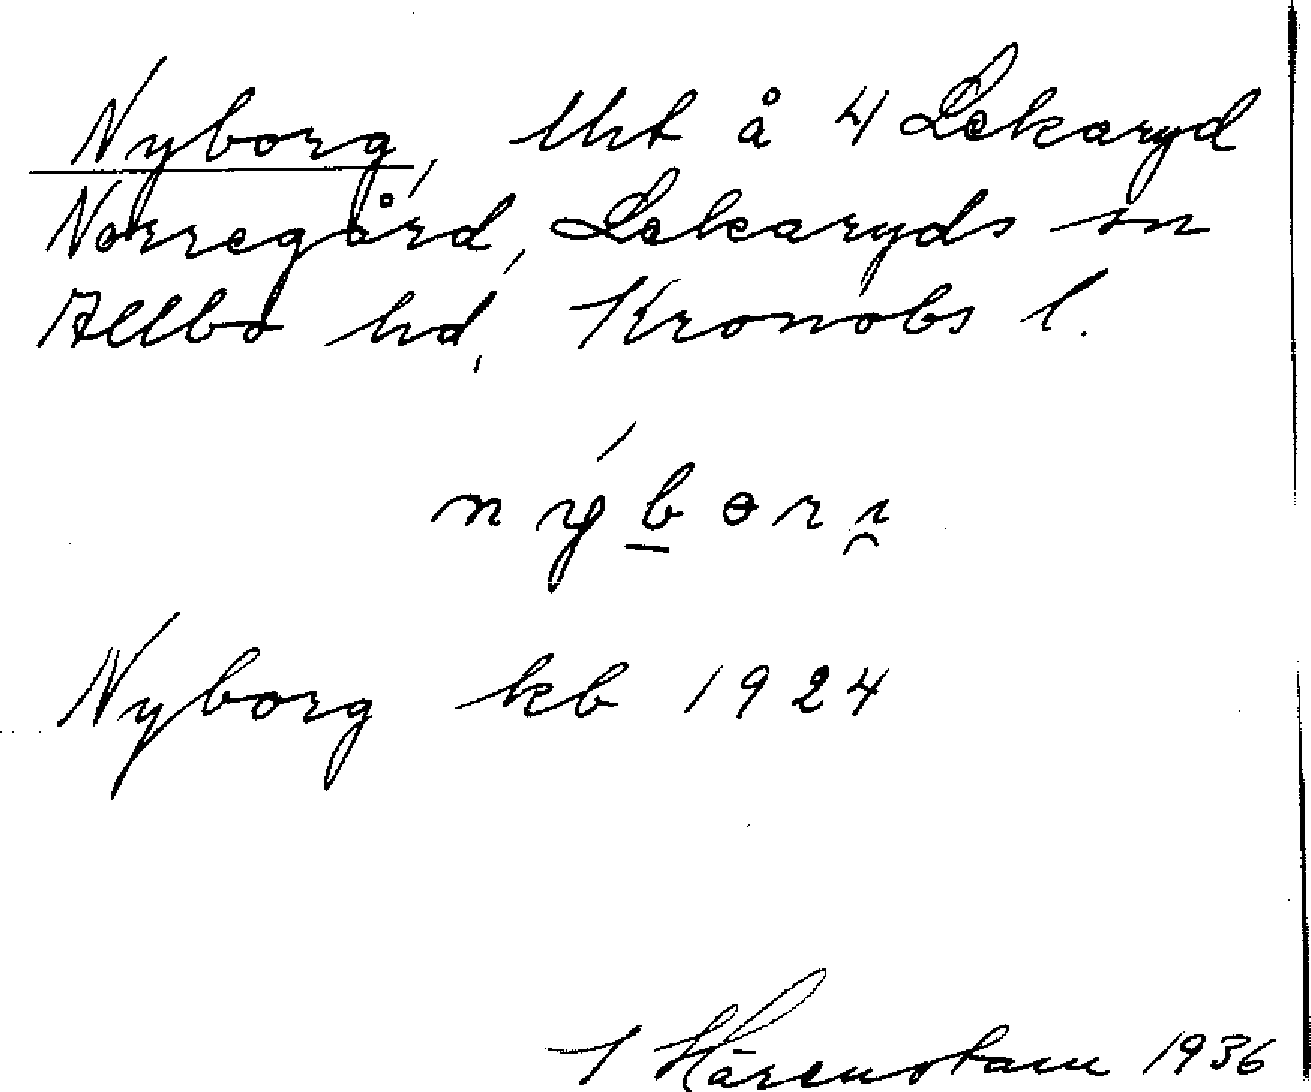 Nyborg, lht å 4 Lekaryd
Norregård, Lekaryds sn
Allbo hd, Kronobs l.
nýbɵri̯
Nyborg kb 1924
I Härenstam 1936